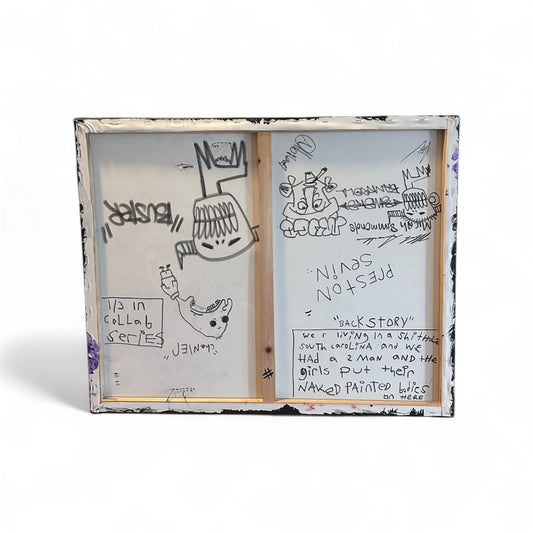 "BUSTER"
1/3 IN
COLLAB
SERIES
"CHANIEL"
Micah Simmonds
PRESTON
SEVIN
"BACKSTORY"
WE R LIVING IN A SHITHOLE
SOUTH CAROLINA AND WE
HAD A 2 MAN AND THE
girls PUT their
NAKED PAINTED bodies
ON HERE
#